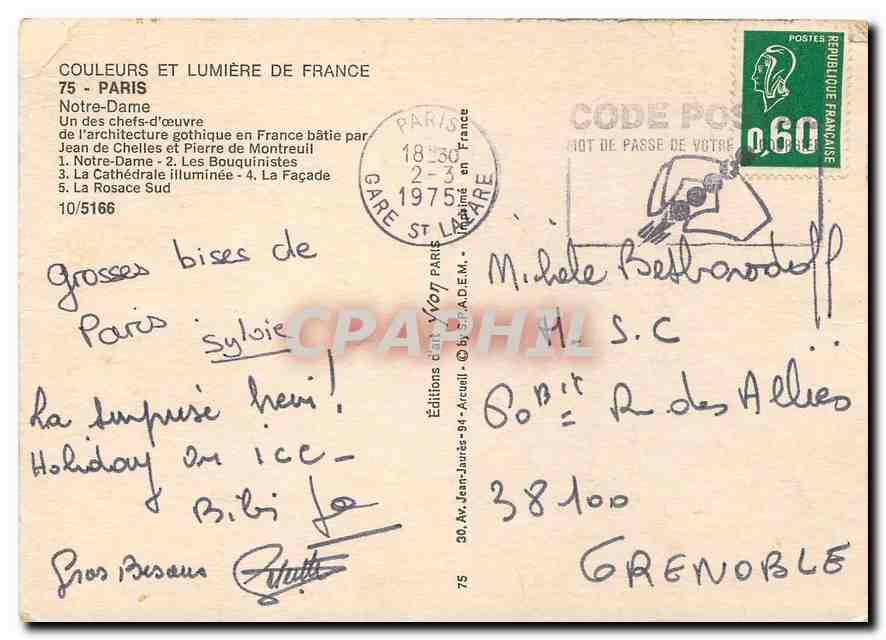 COULEURS ET LUMIÈRE DE FRANCE
75 - PARIS
Notre-Dame
Un des chefs-d'œuvre
de l'architecture gothique en France bâtie par
Jean de Chelles et Pierre de Montreuil
1. Notre-Dame - 2. Les Bouquinistes
3. La Cathédrale illuminée - 4. La Façade
5. La Rosace Sud
10/5166
grosses bises de
Paris Sylvie
La surprise hein!
Holiday on ice -
Bibi
Gros Bisous
PARIS
18 30
2-3
1975
GARE ST LAZARE
75 30, Av. Jean-Jaurès-94 - Arcueil - © by S.P.A.D.E.M. - Imprimé en France
Éditions d'art Yvon PARIS
CODE POS
MOT DE PASSE DE VOTRE COURRIER
POSTES
REPUBLIQUE FRANÇAISE
0,60
Michèle
H. S. C
60 Bis R. des Alliés
38100
GRENOBLE
CPAPHIL